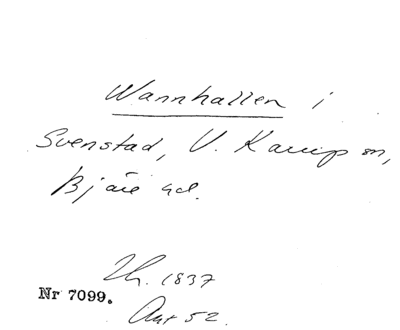 Wannhallen i
Svenstad, V. Karup sn,
Bjäre hd.
Th. 1837
Nr 7099.
Ant 52.